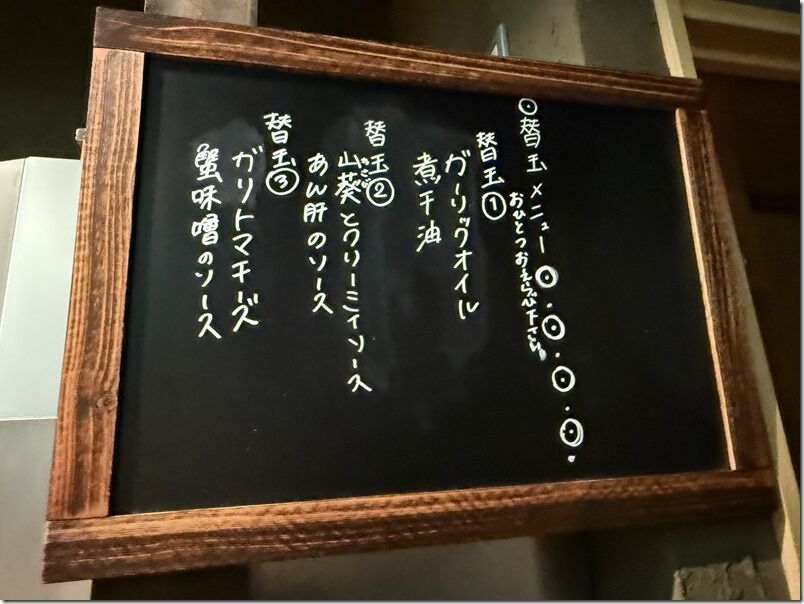 ◎替玉メニュー
おひとつおえらび下さい
替玉①
ガーリックオイル
煮干油
替玉②
山葵とクリーミィソース
あん肝のソース
替玉③
ガリトマチーズ
蟹味噌のソース